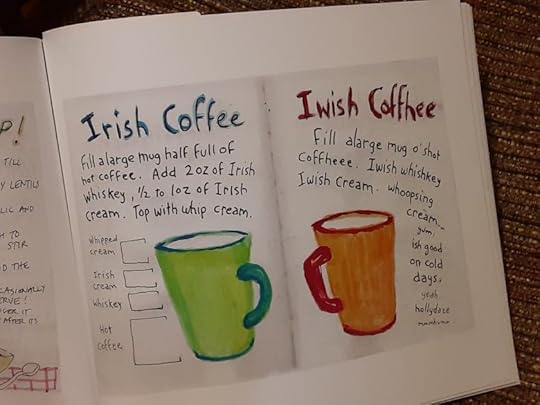 P!
TILL
Y LENTILS
LIC AND
H TO
STIR
D THE
CASIONALLY
ERVE!
GER IT
AFTER ITS
Irish Coffee
Fill a large mug half full of
hot coffee. Add 2oz of Irish
Whiskey, 1/2 to 1oz of Irish
cream. Top with whip cream.
Whipped
cream
Irish
cream
Whiskey
Hot
Coffee
Iwish Coffhee
Fill alarge mug o'shot
Coffheee. Iwish whishkey
Iwish Cream. whoopsing
cream...
yum,
ish good
on cold
days,
yeah
hollydaze